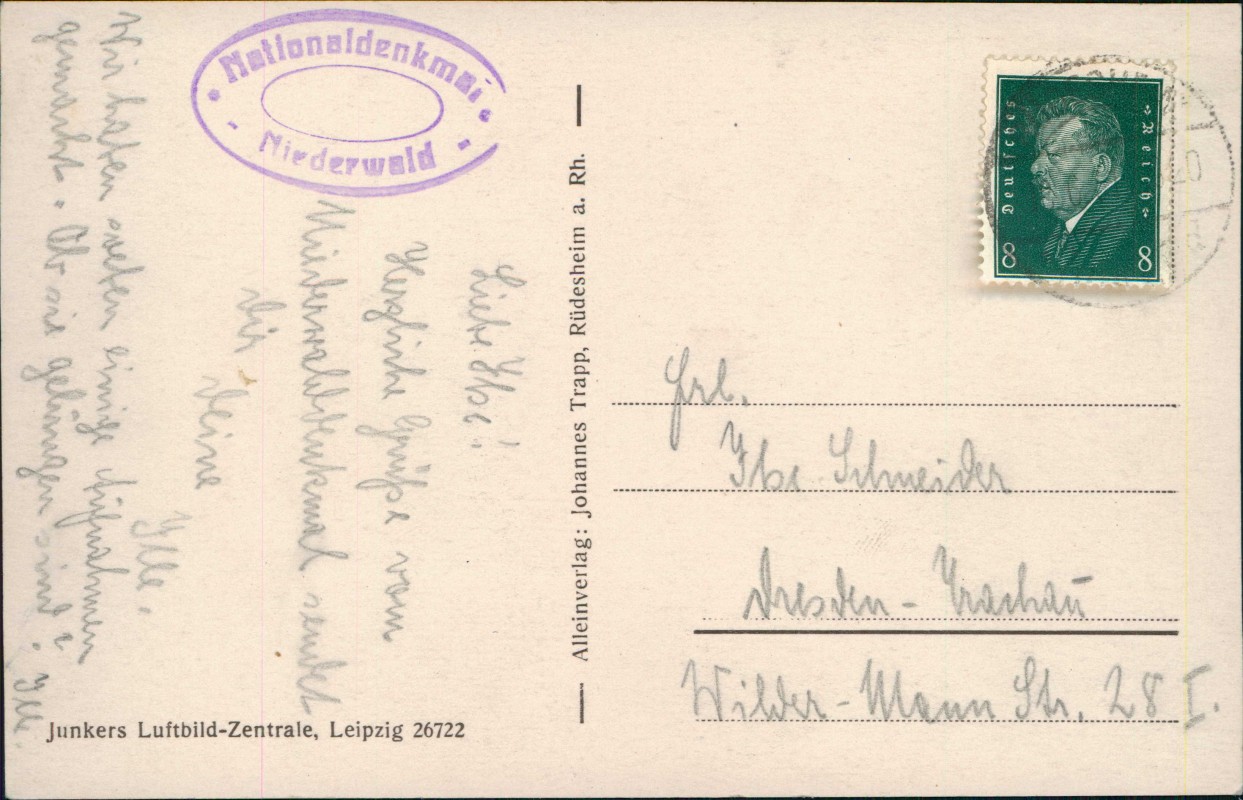 Nationaldenkmal
Niederwald
Liebe Ilse!
Herzliche Grüße vom
Niederwalddenkmal sendet
Dir
Deine
Ille.
Wir haben soeben einige Aufnahmen
gemacht. Ob sie gelungen sind? Ill.
Junkers Luftbild-Zentrale, Leipzig 26722
Alleinverlag: Johannes Trapp, Rüdesheim a. Rh.
Deutsches
Reich
8 8
Frl.
Ilse Schneider
Dresden-Trachau
Wilder-Mann Str. 28 I.